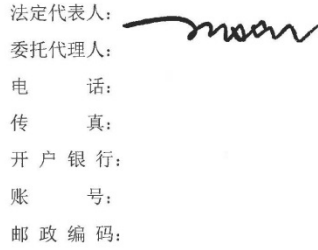 法定代表人:
委托代理人:
电 话:
传 真:
开 户 银 行:
账 号:
邮 政 编 码: